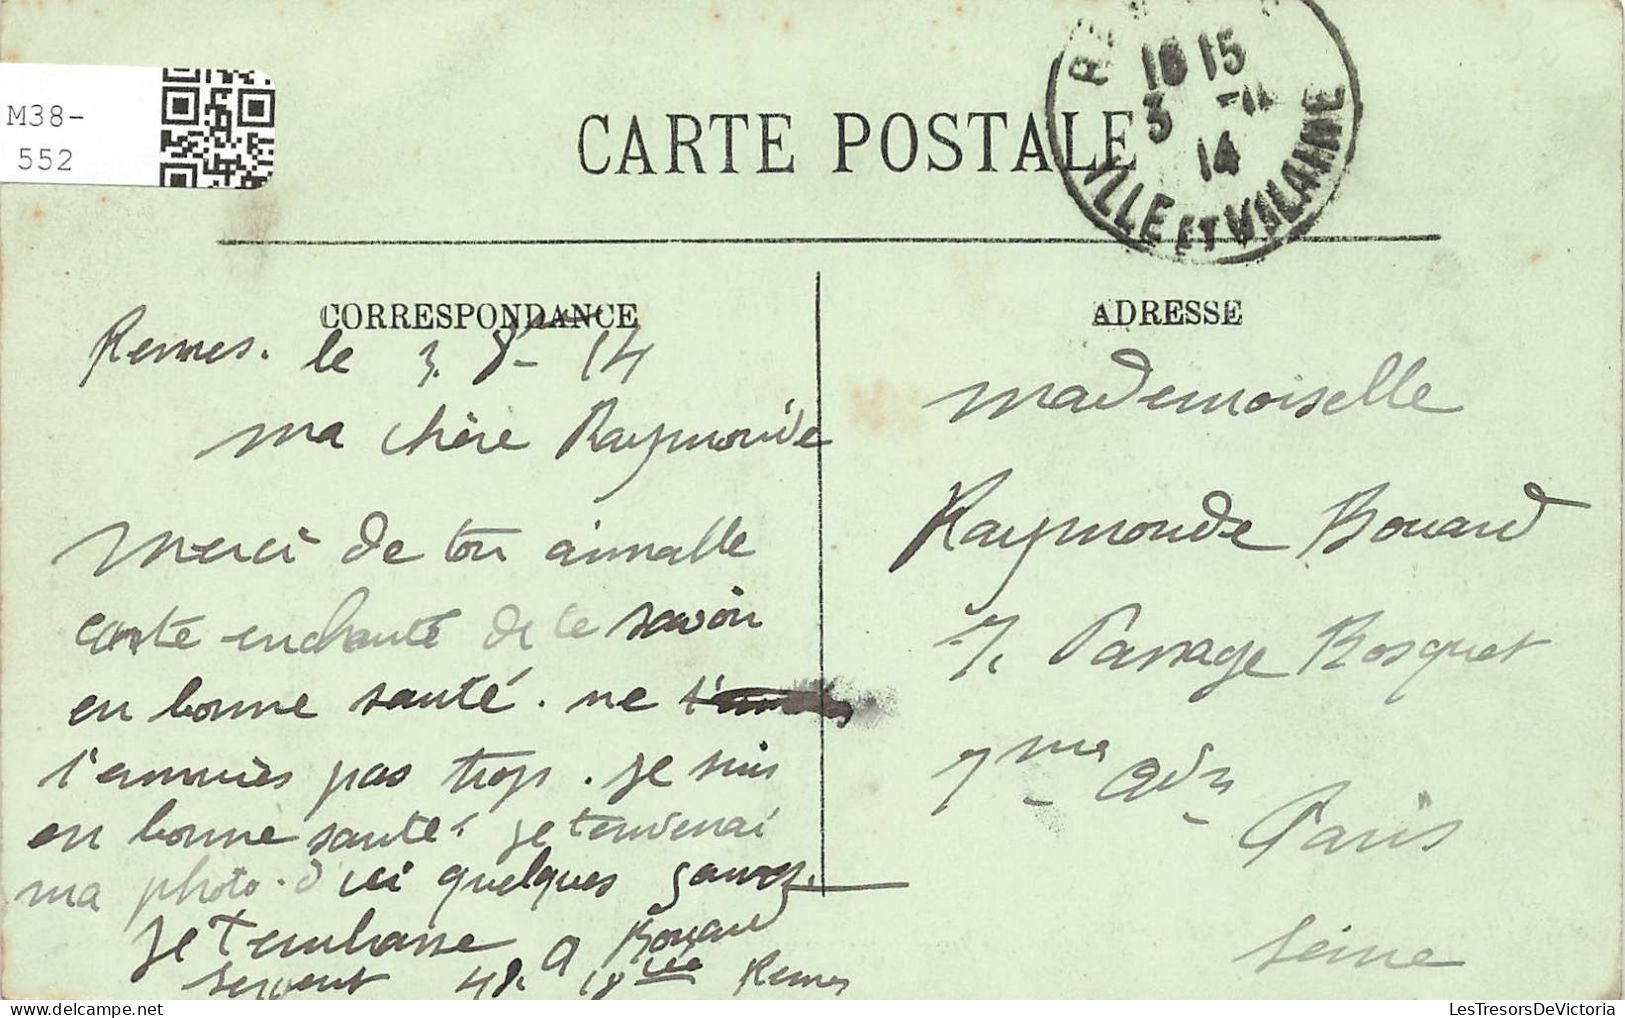 M38-
552
CARTE POSTALE
10 15
3
14
ILLE ET VILAINE
CORRESPONDANCE
Rennes. le 3. 8bre 14
ma chère Raymonde
Merci de ton aimable
carte enchanté de te savoir
en bonne santé. ne
t'ennuies pas trop. je suis
en bonne santé. je tenverrai
ma photo. d'ici quelques jours.
je t'embrasse A Bouard
Sergent 48. 18ème Rennes
ADRESSE
Mademoiselle
Raymonde Bouard
7. Passage Bosquet
7me
Paris
Seine
LesTresorsDeVictoria